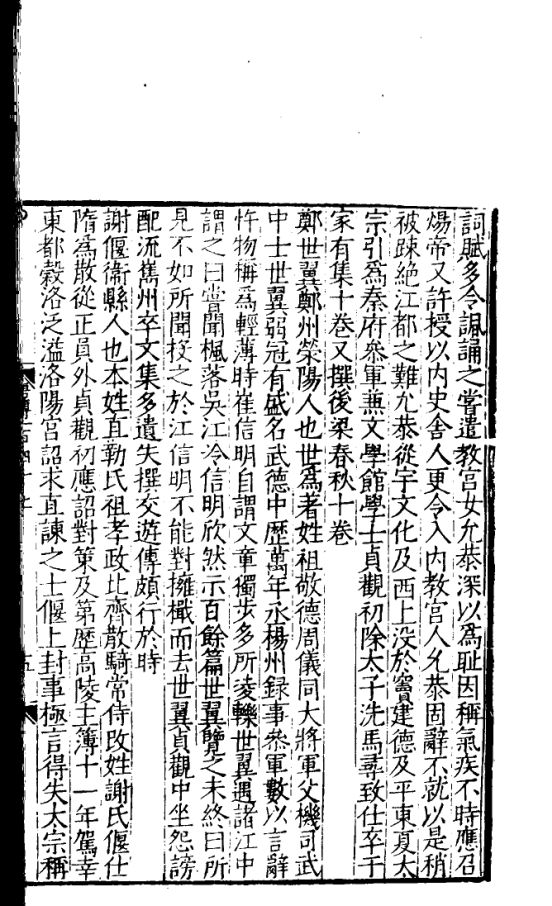 詞賦多令諷誦之嘗遣教宮女允恭深以爲恥因稱氣疾不時應召
煬帝又許授以內史舍人更令入內教宮人允恭固辭不就以是稍
被踈絕江都之難允恭從宇文化及西上没於竇建德及平東夏太
宗引爲秦府叅軍兼文學館學士貞觀初除太子洗馬尋致仕卒于
家有集十卷又撰後梁春秋十卷
鄭世翼鄭州滎陽人也世爲著姓祖敬德周儀同大將軍父機司武
中士世翼弱冠有盛名武德中歷萬年丞楊州録事叅軍數以言辭
忤物稱爲輕薄時崔信明自謂文章獨步多所凌轢世翼遇諸江中
謂之曰嘗聞楓落吳江冷信明欣然示百餘篇世翼覽之未終曰所
見不如所聞投之於江信明不能對擁檝而去世翼貞觀中坐怨謗
配流巂州卒文集多遺失撰交遊傳頗行於時
謝偃衞縣人也本姓直勒氏祖孝政北齊散騎常侍改姓謝氏偃仕
隋爲散從正員外貞觀初應詔對策及第歷高陵主簿十一年駕幸
東都穀洛泛溢洛陽宮詔求直諫之士偃上封事極言得失太宗稱
五